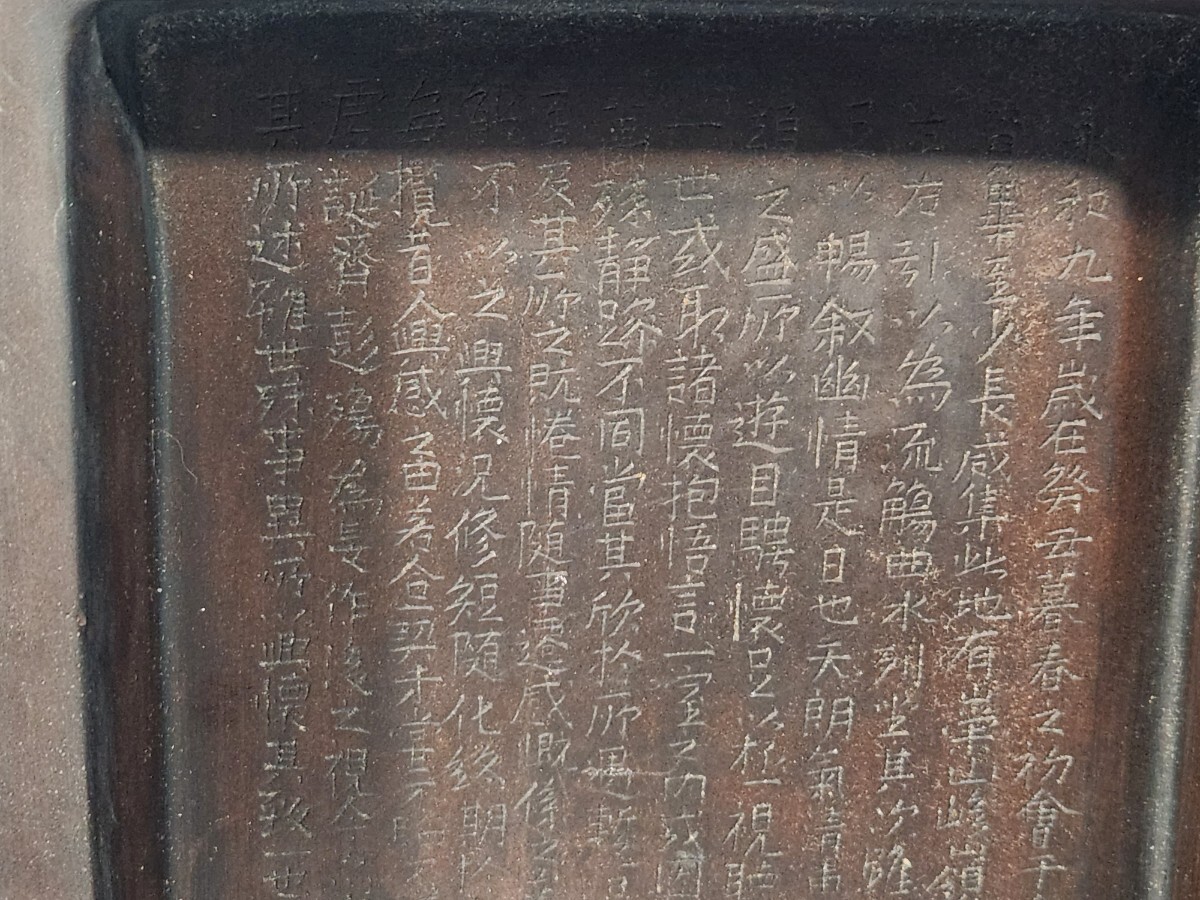 永和九年歲在癸丑暮春之初會于
賢畢至少長咸集此地有崇山峻嶺
左右引以為流觴曲水列坐其次雖
足以暢叙幽情是日也天朗氣清惠
類之盛所以遊目騁懷足以極視聽
一世或取諸懷抱悟言一室之內或因
萬殊静躁不同當其欣於所遇暫
至及其所之既惓情随事遷感慨係之
能不以之興懷況修短隨化終期於
每攬昔人興感之由若合一契未
虛誕齊彭殤為妄作後之視今
其所述雖世殊事異所以興懷其致一也